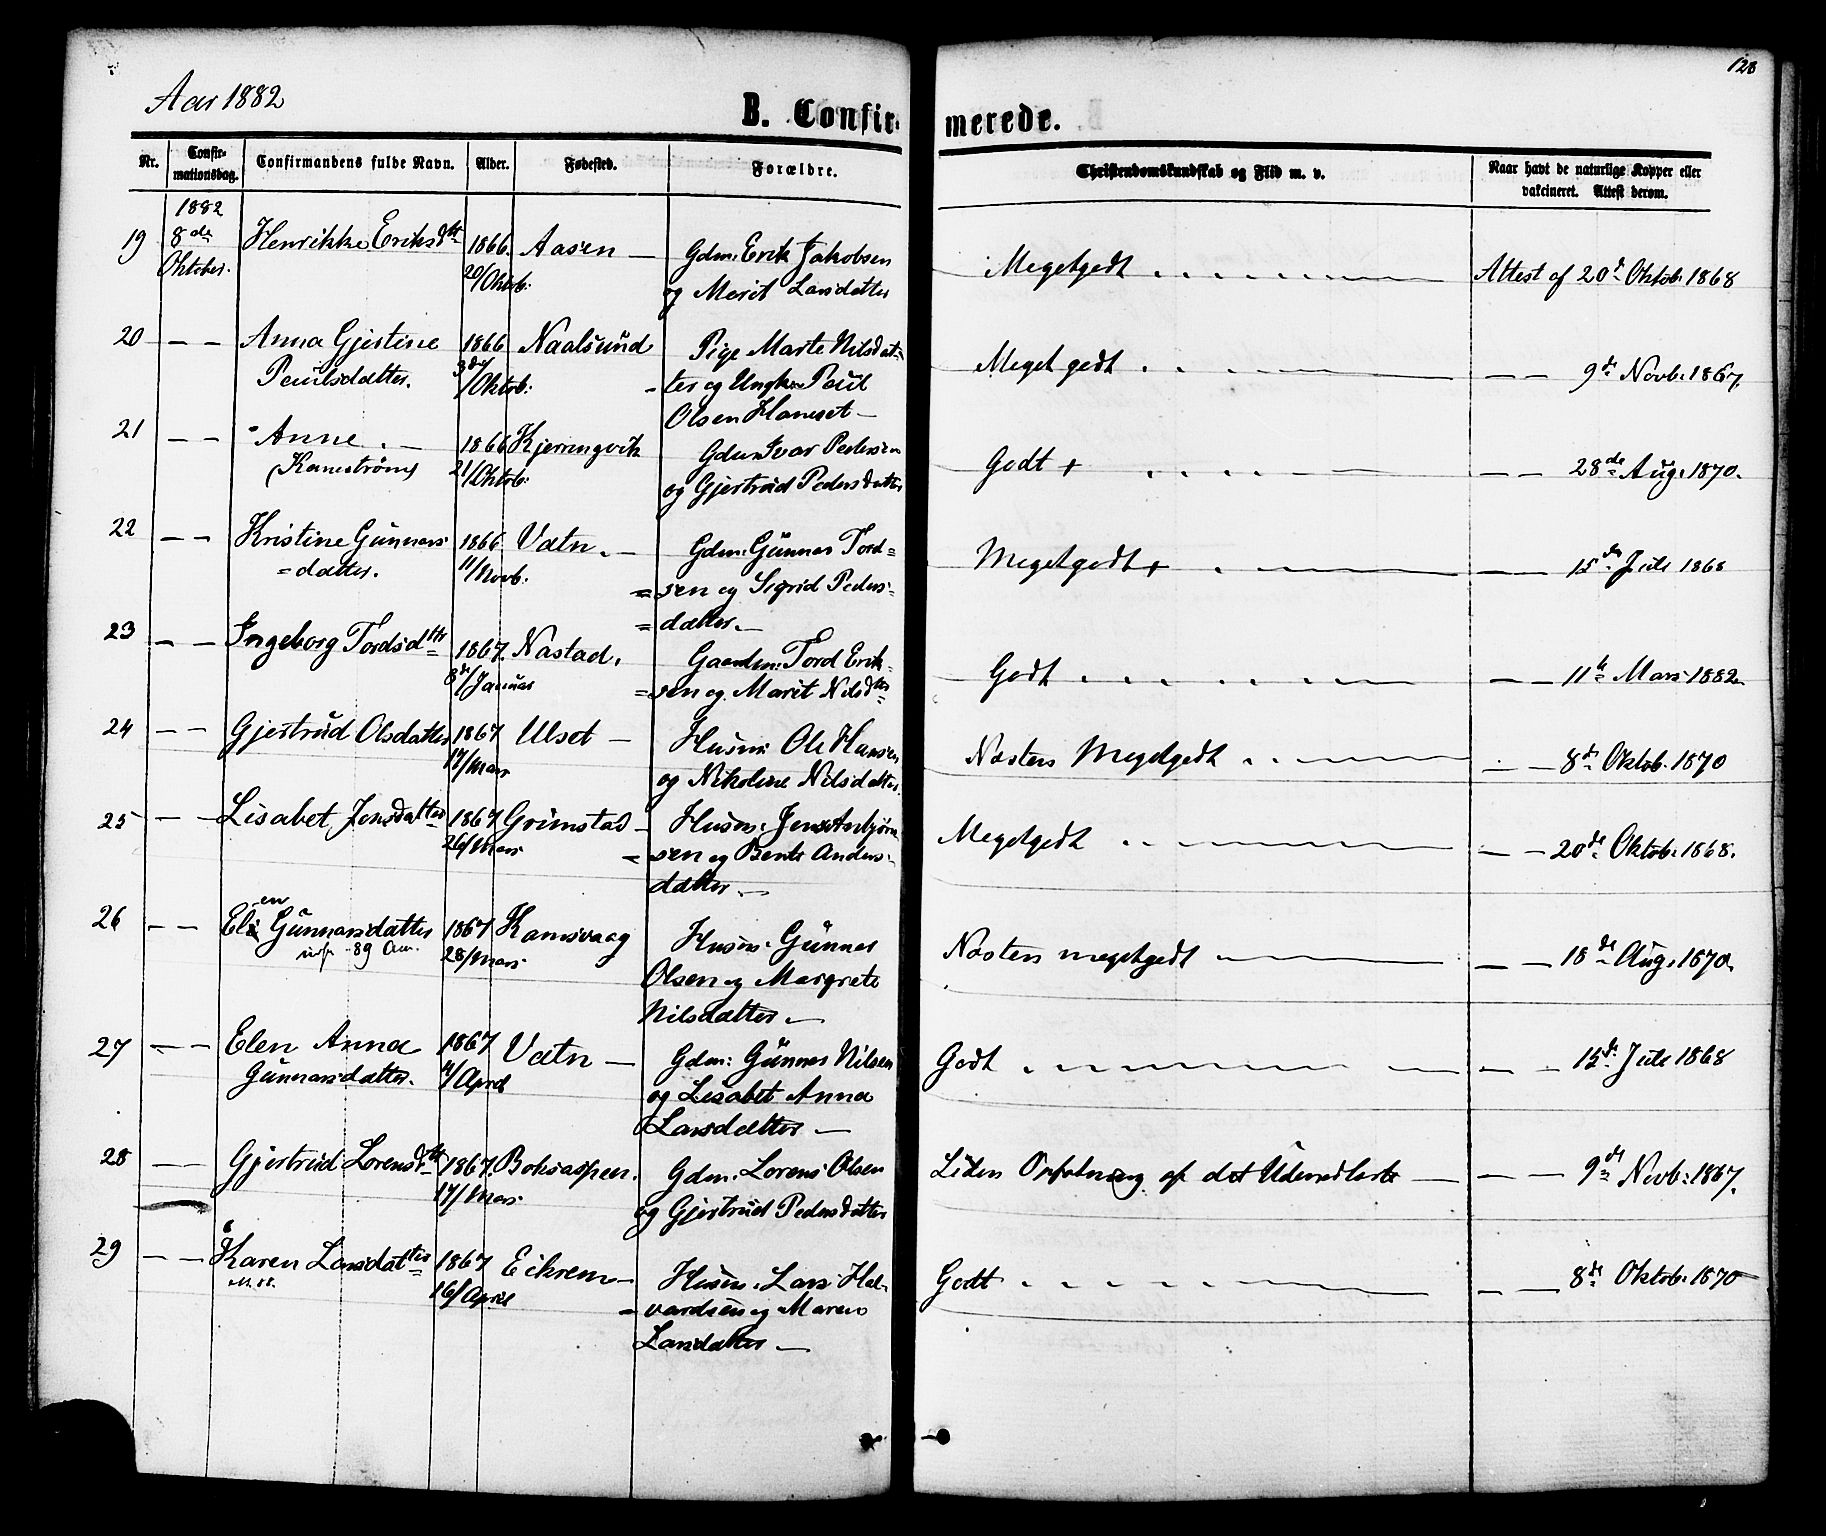 128
Aar 1882
B. Confirmerede.
Nr. Confirmationsdag. Confirmandens fulde Navn. Alder. Fødested. Forældre. Christendomskundskab og Flid m. v. Naar havt de naturlige Kopper eller vakcineret. Attest derom.
1882
19 8de Oktober. Henrikke Eriksdtt 1866. 20/Oktob: Aasen — Gdm. Erik Jakobsen
og Marit Larsdatter
Megetgodt Attest af 20de Oktob. 1868
20 — — Anna Gjertine
Paulsdatter. 1866 3de/Oktob: Naalsund Pige Marte Nilsdat-
-ter og Ungk. Paul
Olsen Haneset —
Meget godt — — 9de Novb. 1867.
21 — — Anne. —
Kanestrøm 1866 21/Oktob: Kjerringvik Gdm. Ivar Pedersen
og Gjertrud Pedersdatter
Godt + — — 28de Aug. 1870.
22 — — Kristine Gunnars-
=datter. 1866 11/Novb. Vatn. — Gdm. Gunnar Tord=
=sen og Sigrid Peders-
=datter. —
Megetgodt + — — 15de Juli 1868
23 — — Ingeborg Tordsdtt 1867. 8de/Januar Nastad. Gaardm: Tord Erik-
=sen og Marit Nilsdtt
Godt — — 11te Mars 1882.
24 — — Gjertrud Olsdatter 1867 17/Mars Ulset — Husm: Ole Hansen
og Nikoline Nilsdatter.
Næsten Megetgodt — — 8de Oktob. 1870
25 — — Lisabet Jensdatter 1867 26/Mars Grimstad — Husm. Jens Asbjørn
-sen og Berit Anders-
datter. —
Megetgodt — — 20de Oktob. 1868.
26 — — Elen Gunnarsdatter 1867 28/Mars Ramsvaag Husm. Gunnar
89 Am.
Olsen og Margrete
Nilsdatter. —
Næsten megetgodt — — 18de Aug. 1870.
27 — — Elen Anna
Gunnarsdatter. 1867 /April Vatn — Gdm: Gunnar Nilsen
og Lisabet Anna
Larsdatter —
Godt — — 15de Juli 1868
28 — — Gjertrud Lorensdtt 1867. 17/Mars Gdm. Lorens Olsen
og Gjertrud Pedersdatter
Liden Opfatning af det Udenadlærte — — — 9de Novb: 1867.
29 — — Karen Larsdatter 1867 16/April Eikrem — Husm. Lars Hal-
-vardsen og Maren
Larsdatter —
Godt — — 8de Oktob. 1870